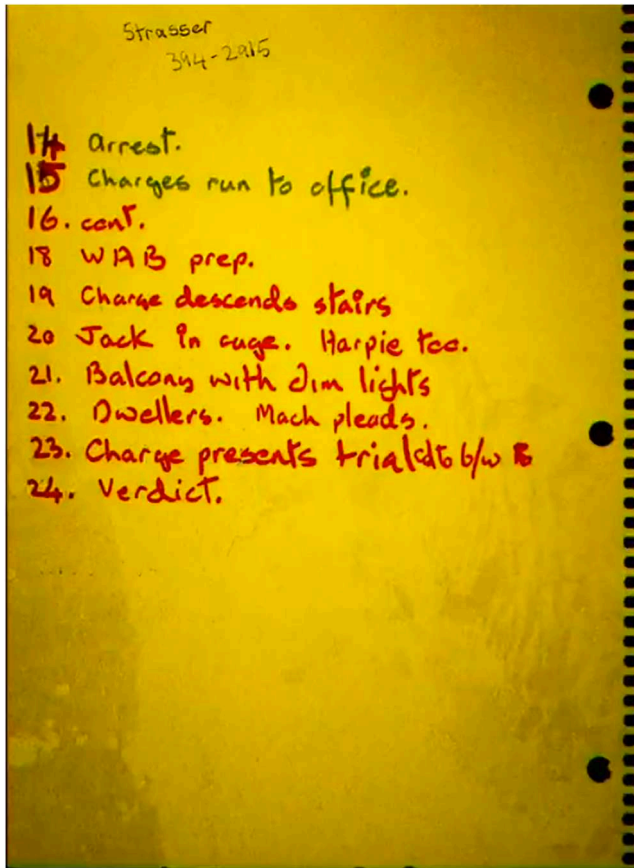 Strasser
394-2915
14 arrest.
15 Charges run to office.
16. cont.
18 WAB prep.
19 Charge descends stairs
20 Jack in cage. Harpie too.
21. Balcony with dim lights
22. Dwellers. Mach pleads.
23. Charge presents trial b/w
24. Verdict.